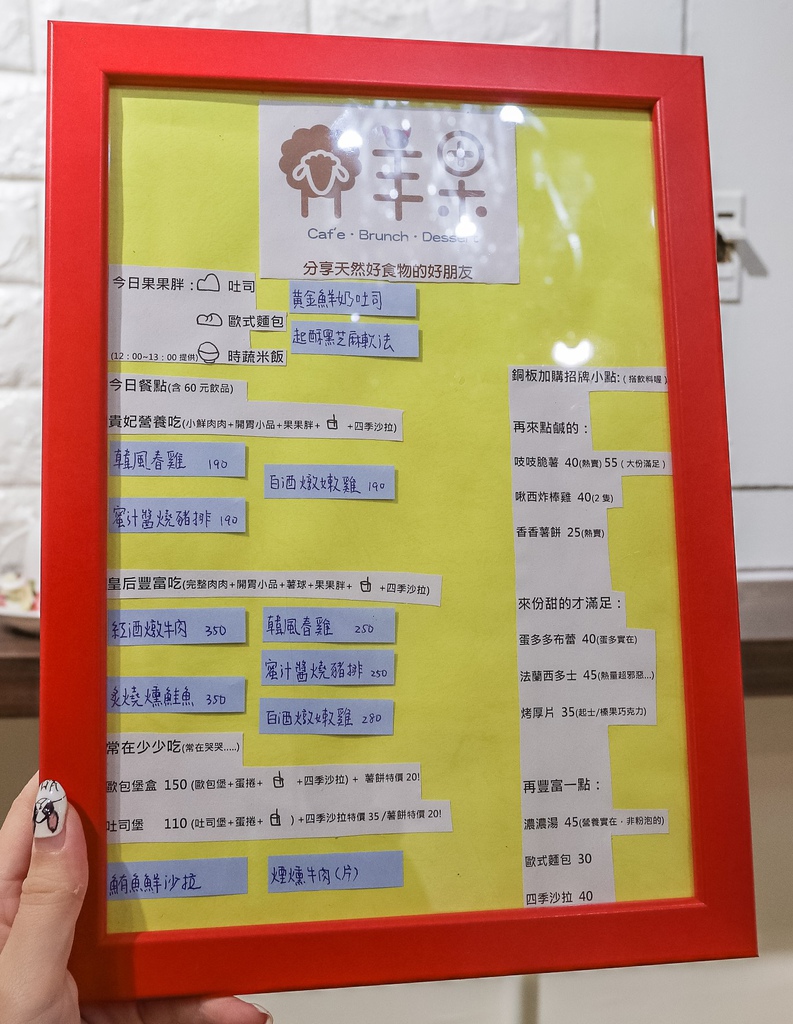 羊果
Caf'e · Brunch · Dessert
分享天然好食物的好朋友
今日果果胖： 吐司
歐式麵包
(12：00~13：00 提供) 時蔬米飯
黃金鮮奶吐司
起酥黑芝麻軟法
今日餐點(含 60 元飲品)
貴妃營養吃(小鮮肉肉+開胃小品+果果胖+ +四季沙拉)
韓風春雞 190
白酒燉嫩雞 190
蜜汁醬燒豬排 190
皇后豐富吃(完整肉肉+開胃小品+薯球+果果胖+ +四季沙拉)
紅酒燉牛肉 350
韓風春雞 250
蜜汁醬燒豬排 250
炙燒燻鮭魚 350
白酒燉嫩雞 280
常在少少吃(常在哭哭.....)
歐包堡盒 150 (歐包堡+蛋捲+ +四季沙拉) + 薯餅特價 20!
吐司堡 110 (吐司堡+蛋捲+ ) +四季沙拉特價 35 /薯餅特價 20!
鮪魚鮮沙拉
煙燻牛肉(片)
銅板加購招牌小點:( 搭飲料喔 )
再來點鹹的：
吱吱脆薯 40(熱賣) 55 ( 大份滿足 )
啾西炸棒雞 40(2 隻)
香香薯餅 25(熱賣)
來份甜的才滿足：
蛋多多布蕾 40(蛋多實在)
法蘭西多士 45(熱量超邪惡...)
烤厚片 35(起士/榛果巧克力)
再豐富一點：
濃濃湯 45(營養實在，非粉泡的)
歐式麵包 30
四季沙拉 40